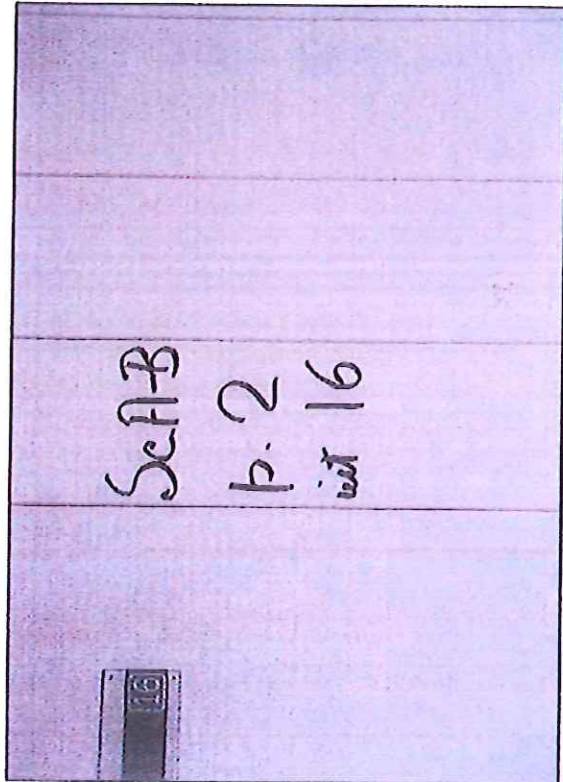 Sc.A-B
p. 2
int 16
16